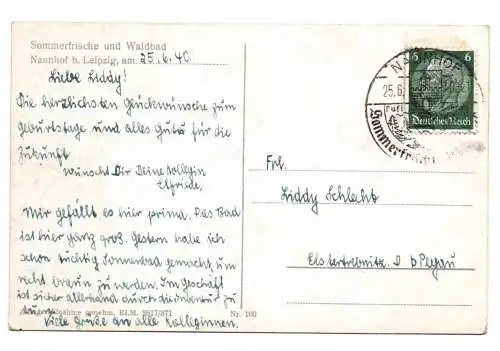 Sommerfrische und Waldbad
Naunhof b. Leipzig, am 25.6.40
Liebe Liddy!
Die herzlichsten Glückwünsche zum
Geburtstage und alles Gute für die
Zukunft
wünscht Dir Deine Kollegin
Elfriede.
Mir gefällt es hier prima. Das Bad
ist hier ganz groß. Gestern habe ich
schon tüchtig Sonnenbad gemacht, um
recht braun zu werden. Im Geschäft
ist sicher allerhand durch die Inventur zu
tun
Viele Grüße an alle Kolleginnen.
genehm. RLM. 3817/371
Nr. 160
NAUNHOF
25.6.
Sommerfrische
6 6
Deutsches Reich
Frl.
Liddy Schlecht
Elstertrebnitz b Pegau